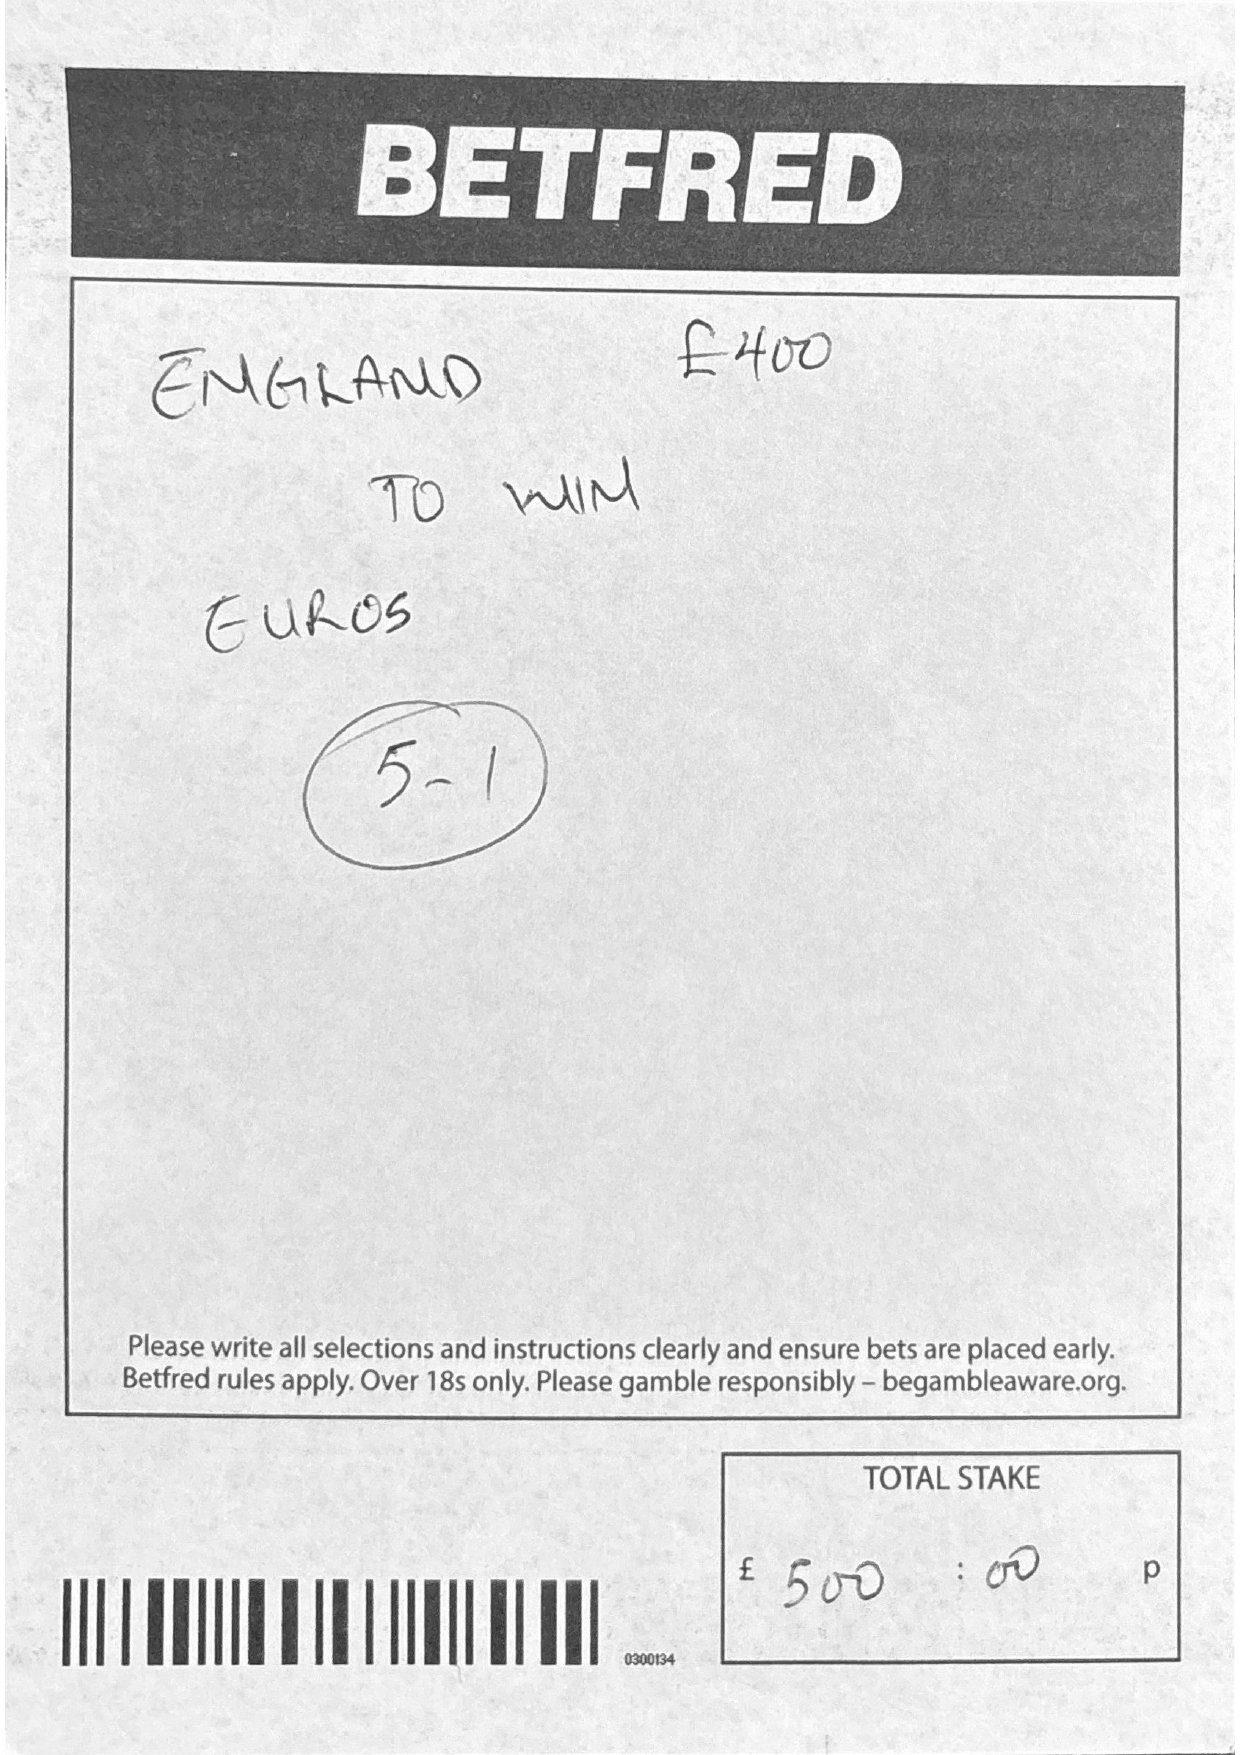 BETFRED
ENGLAND £400
TO WIN
EUROS
5-1
Please write all selections and instructions clearly and ensure bets are placed early.
Betfred rules apply. Over 18s only. Please gamble responsibly – begambleaware.org.
TOTAL STAKE
£ 500 : 00 p
0300134